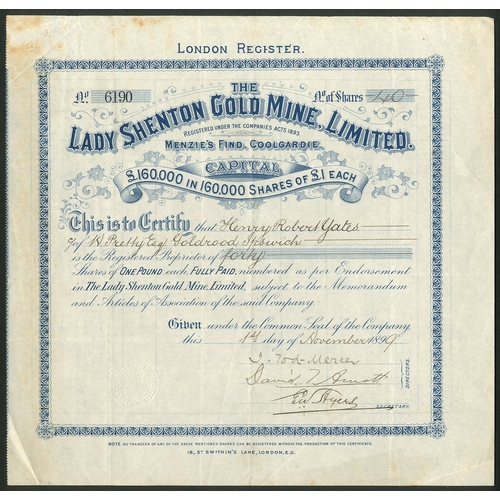 LONDON REGISTER.
No. 6190
No. of Shares 40
THE
LADY SHENTON GOLD MINE, LIMITED.
REGISTERED UNDER THE COMPANIES ACTS 1893.
MENZIE'S FIND, COOLGARDIE.
CAPITAL
£160,000 IN 160,000 SHARES OF £1 EACH
This is to Certify that Henry Robert Yates
of B Pretty Esq Goldrood Ipswich
is the Registered Proprietor of forty
Shares of ONE POUND each, FULLY PAID, numbered as per Endorsement
in The Lady Shenton Gold Mine, Limited, subject to the Memorandum
and Articles of Association of the said Company.
Given under the Common Seal of the Company
this 1st day of November 1899
Mercer
David
DIRECTORS.
SECRETARY.
NOTE NO TRANSFER OF ANY OF THE ABOVE MENTIONED SHARES CAN BE REGISTERED WITHOUT THE PRODUCTION OF THIS CERTIFICATE.
18, ST SWITHIN'S LANE, LONDON, E.C.